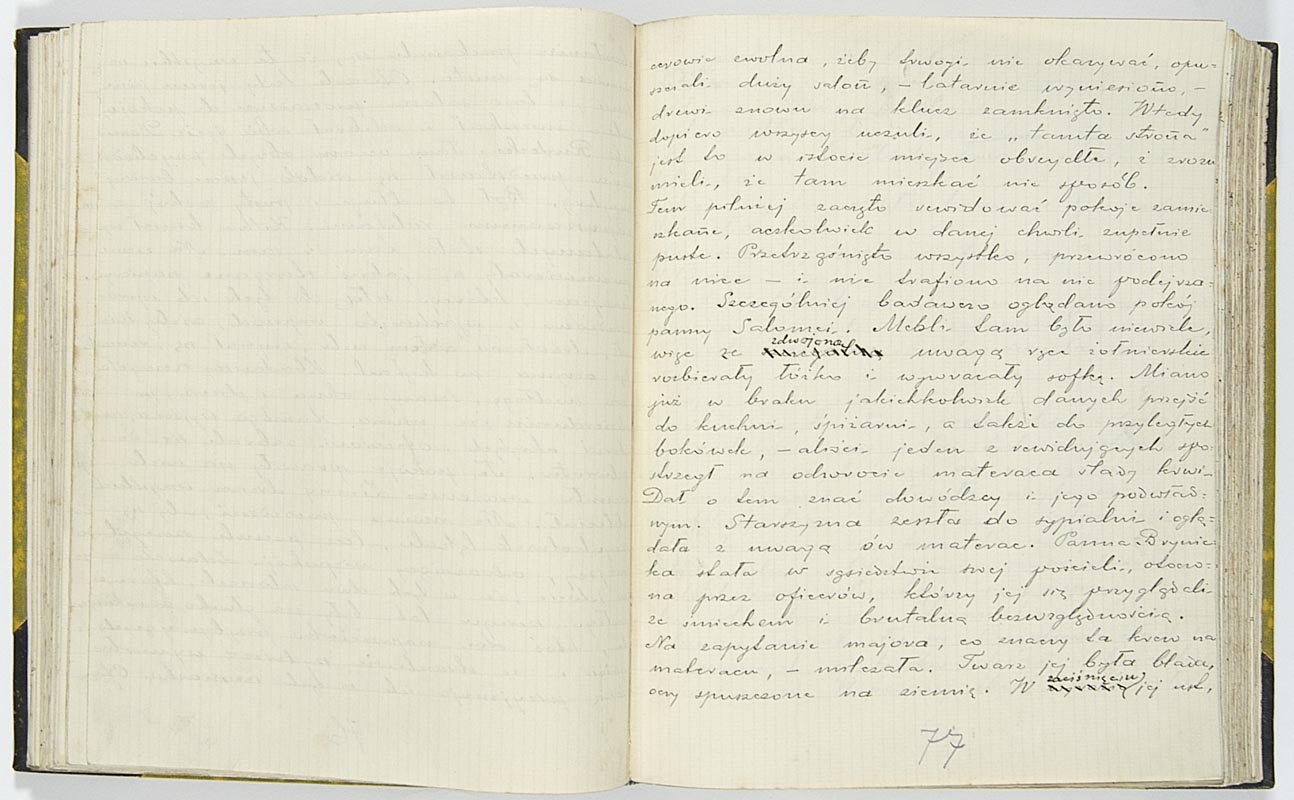 cerowie zwolna, żeby trwogi nie okazywać, opu-
szczali duży salon, – latarnie wyniesiono, –
drzwi znowu na klucz zamknięto. Wtedy
dopiero wszyscy uczuli, że „tamta strona"
jest to w istocie miejsce obrzydłe, i zrozu
mieli, że tam mieszkać nie sposób.
Tem pilniej zaczęto rewidować pokoje zamie
szkane, aczkolwiek w danej chwili zupełnie
puste. Przetrząśnięto wszystko, przewrócono
na nice – i nie trafiono na nic podejrza-
nego. Szczególniej badawczo oglądano pokój
panny Salomei. Mebli tam było niewiele,
więc ze zdwojoną uwagą ręce żołnierskie
rozbierały łóżko i wywracały sofkę. Miano
już w braku jakichkolwiek danych przejść
do kuchni, spiżarni, a także do przyległych
bokówek, – aliści jeden z rewidujących spo-
strzegł na odwrocie materaca ślady krwi.
Dał o tem znać dowódzcy i jego podwład-
nym. Starszyzna zeszła do sypialni i oglą-
dała z uwagą ów materac. Panna Brynic
ka stała w sąsiedztwie swej pościeli, otoczo-
na przez oficerów, którzy jej się przyglądali
ze śmiechem i brutalną bezwzględnością.
Na zapytanie majora, co znaczy ta krew na
materacu, – milczała. Twarz jej była blada,
oczy spuszczone na ziemię. W zaciśnięciu jej ust,
77